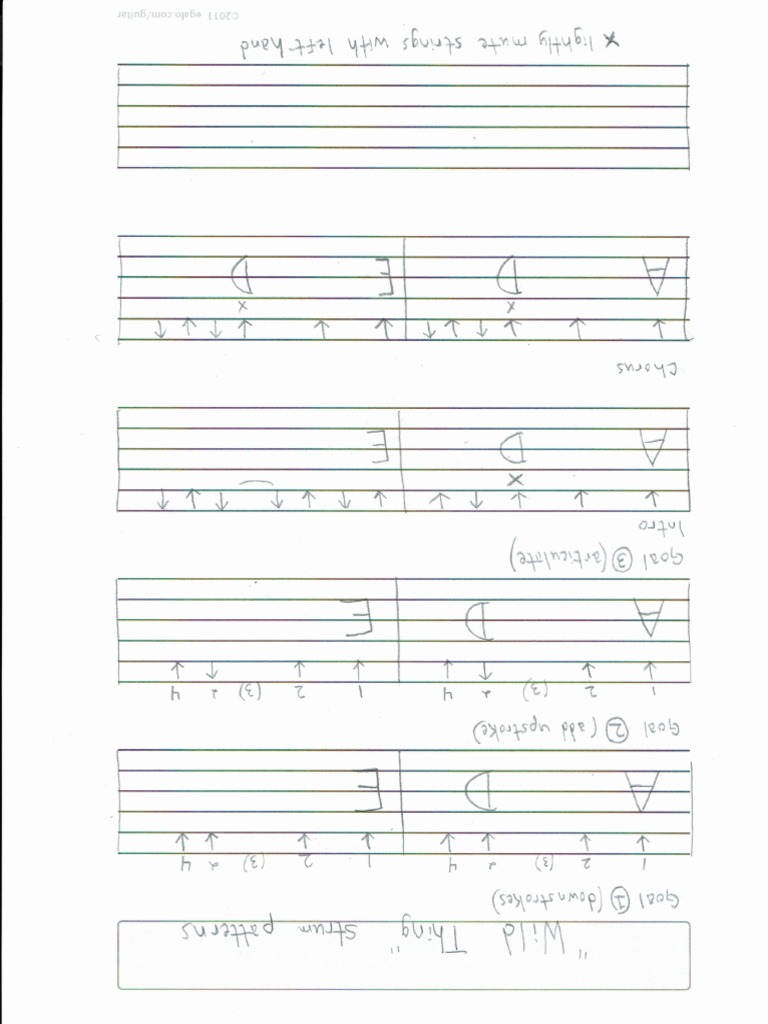 "Wild Thing" strum patterns
Goal ① (downstrokes)
1 2 (3) & 4 1 2 (3) & 4
A D E
Goal ② (add upstroke)
1 2 (3) & 4 1 2 (3) & 4
A D E
Goal ③ (articulate)
Intro
x
A D E
Chorus
x x
A D E D
x lightly mute strings with left hand
©2011 egalo.com/guitar